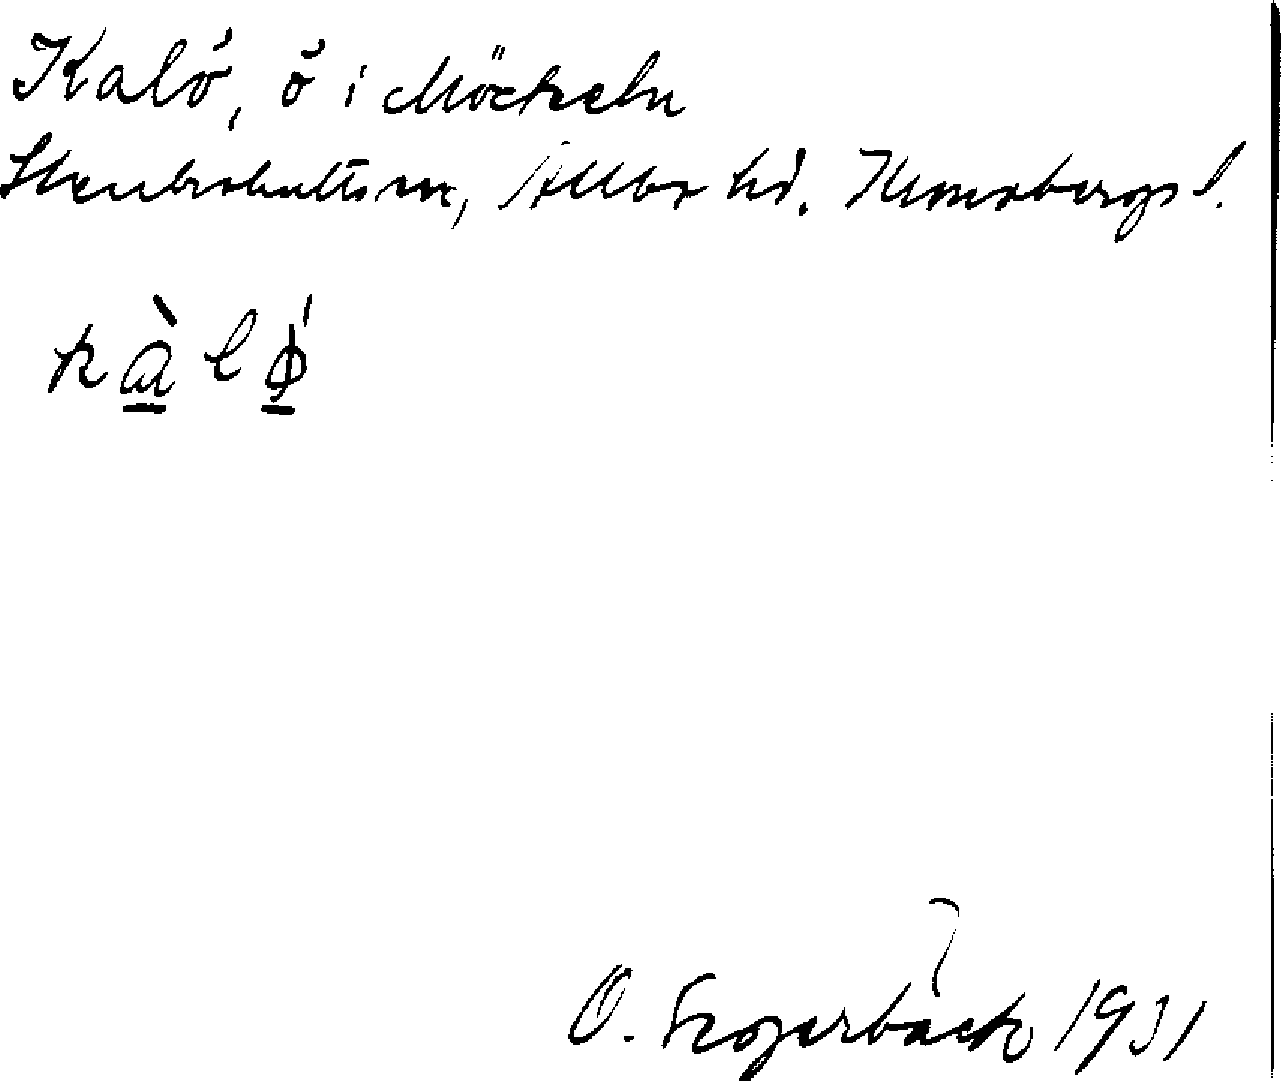 Kalö, ö i Möckeln
Stenbrohults sn, Allbo hd. Kronobergs l.
kàlǿ
O. Fagerbäck 1931